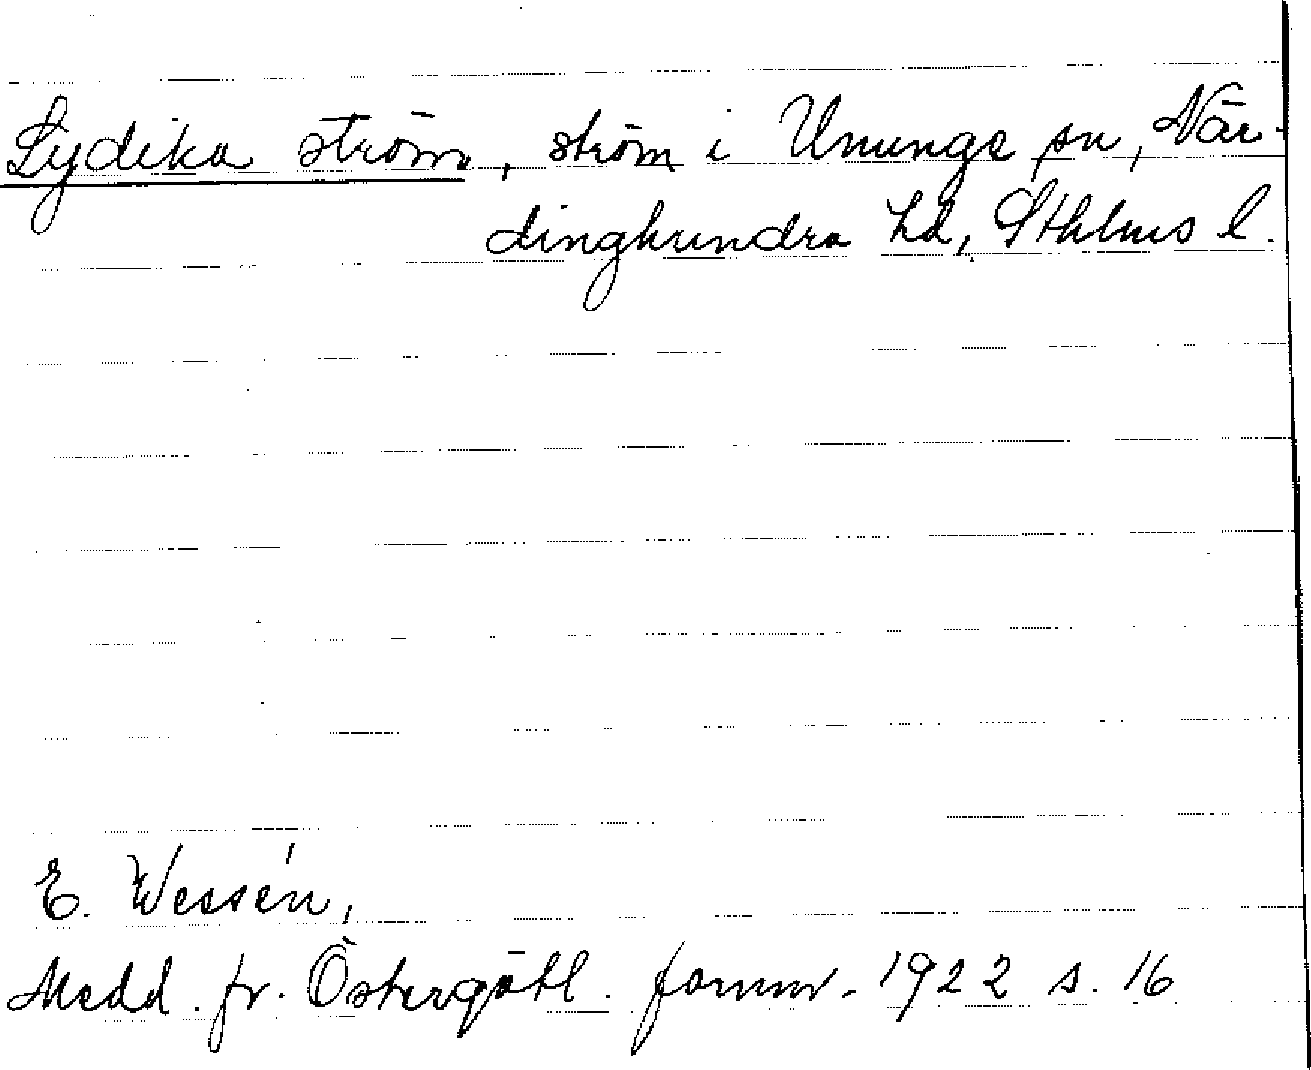 Lydika ström, ström i Ununge sn, När-
dinghundra hd, Sthlms l.
E. Wessén,
Medd. fr. Östergötl. fornm. 1922 s. 16